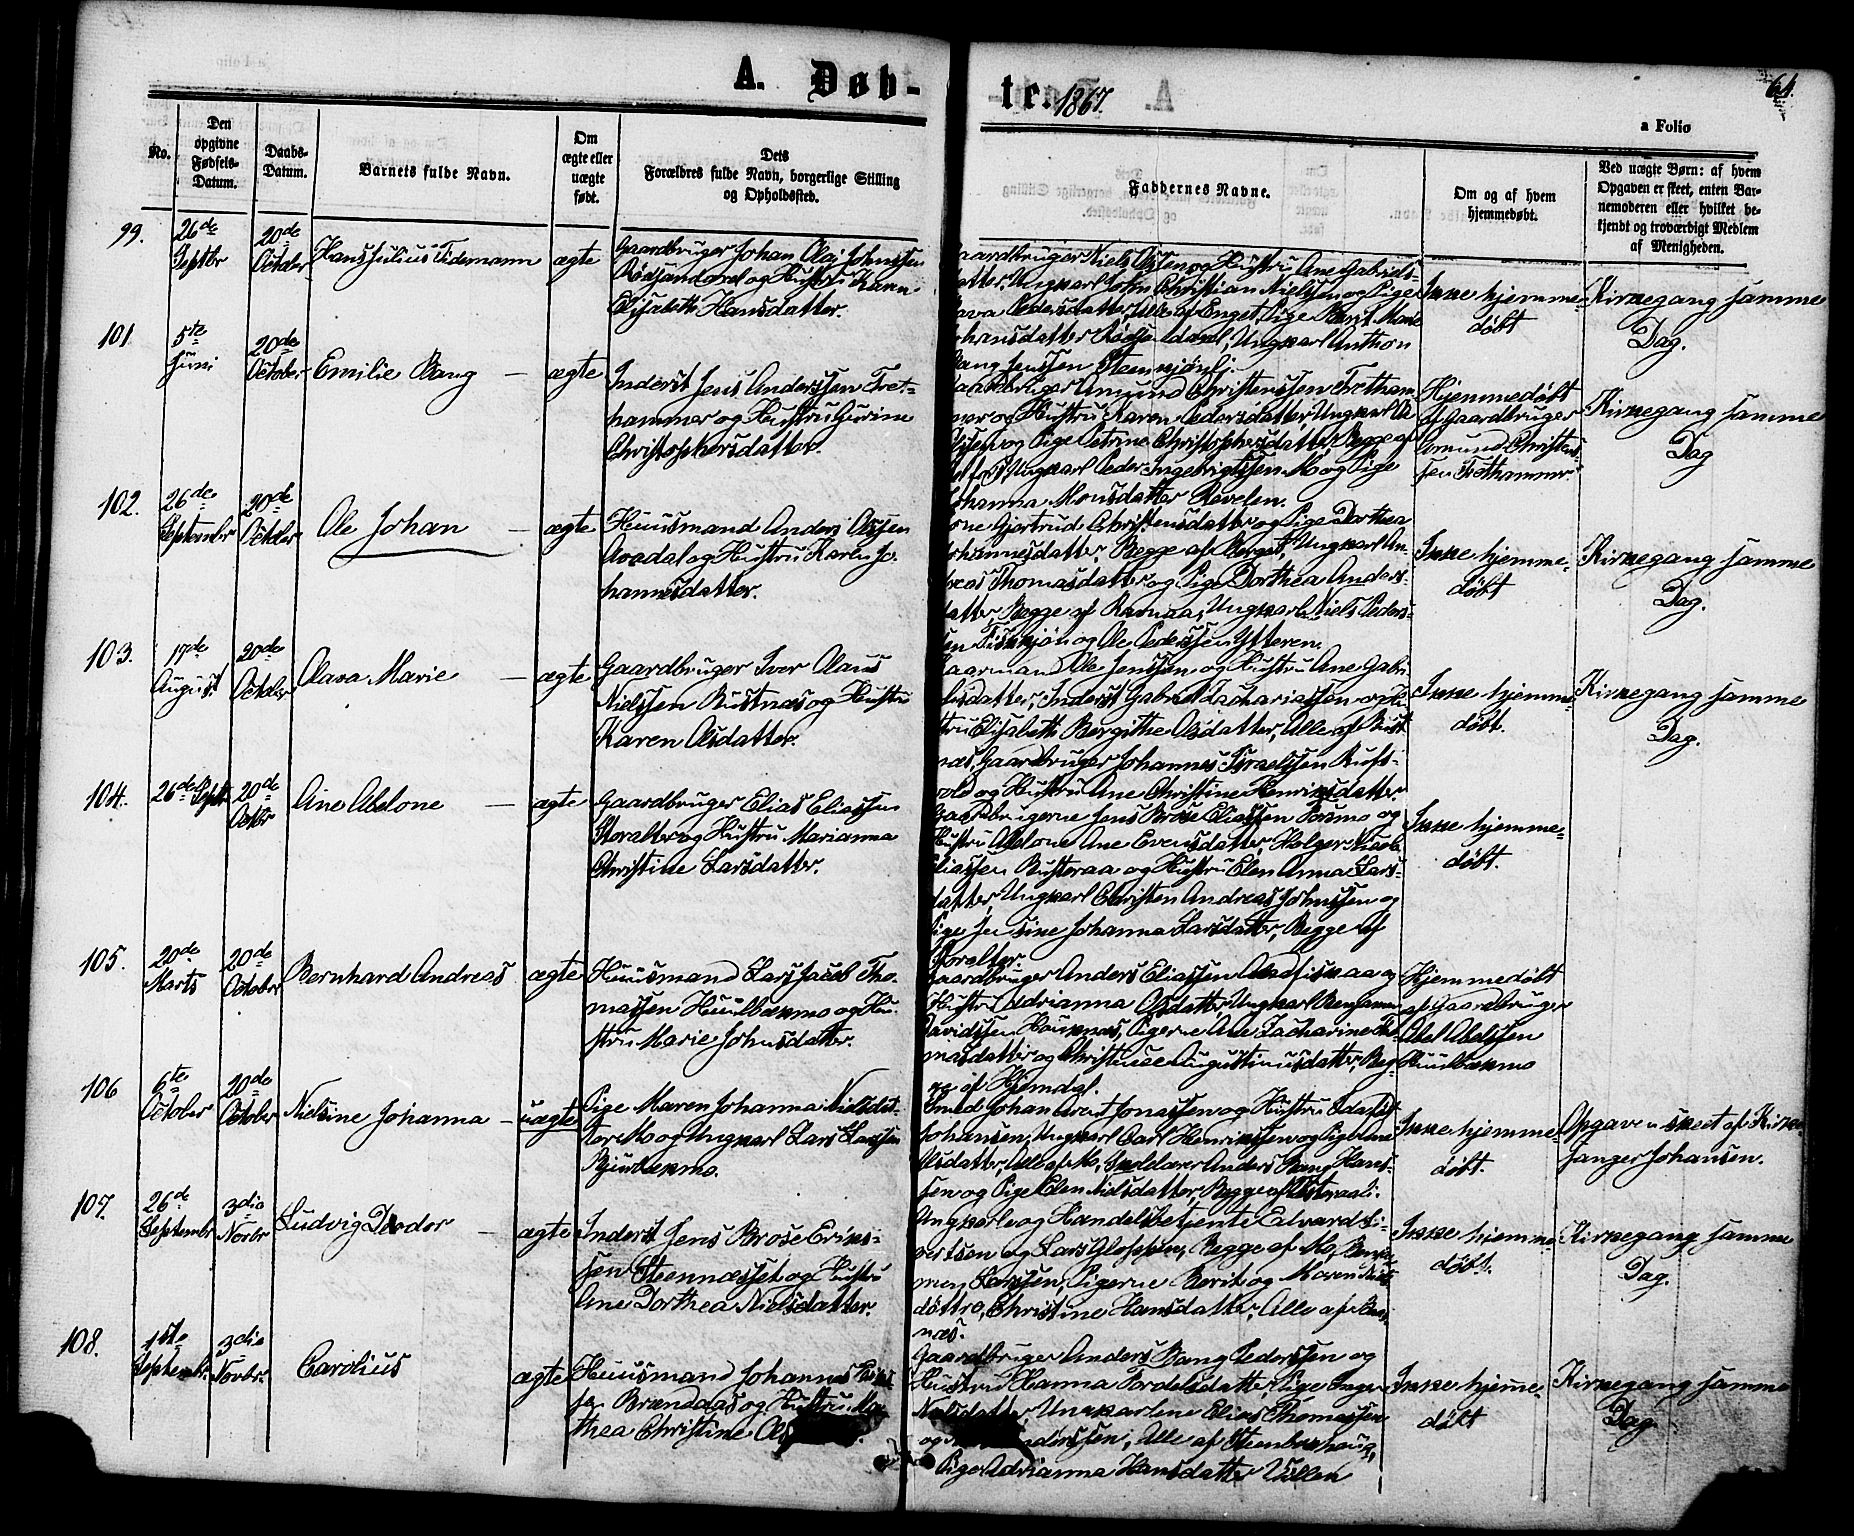 A. Døb-
te. 1867.
64.
a Folio
No.
Den
opgivne
Fødsels-
Datum.
Daabs-
Datum.
Barnets fulde Navn.
Om
ægte eller
uægte
født.
Dets
Forældres fulde Navn, borgerlige Stilling
og Opholdssted.
Faddernes Navne.
Om og af hvem
hjemmedøbt.
Ved uægte Børn: af hvem
Opgaven er skeet, enten Bar-
nemoderen eller hvilket be-
kjendt og troværdigt Medlem
af Menigheden.
99.
26de
Septbr
20de
October
Hans Julius Tidemann
ægte
Gaardbruger Johan Olai Johnssen
og Hustru Karen
Elisabeth Hansdatter.
aardbruger Niels Olssen og Hustru Ane Gabriels-
datter, Ungkarl John Christian Nielssen og Pige
Pedersdatter, Alle af Enget, Pige Berit Marie
Johansdatter, Ungkarl Anthon
Bang Jenssen
Ikke hjemme-
døbt
Kirkegang samme
Dag.
101
5te
Juni
20de
October
Emilie Bang
ægte
Inderst Jens Anderssen Tret-
hammer og Hustru Gurine
Christophersdatter.
Gaardbruger Amund Christenssen Tretham-
mer og Hustru Karen Pedersdatter, Ungkarl
Olssen og Pige Petrine Christophersdatter, Begge af
Ungkarl Peder Ingebrigtssen Mo og Pige
Johanna Monsdatter Revelen.
Hjemmedøbt
af Gaardbruger
Amund Christens-
sen Trethammer.
Kirkegang samme
Dag
102.
26de
September
20de
October
Ole Johan
ægte
Huusmand Anders Olssen
Avadal og Hustru Karen Jo-
hannesdatter.
Kone Gjertrud Christensdatter og Pige Dorthea
Johannesdatter, Begge af Berget, Ungkarl An-
dreas Thomasdatter og Pige Dorthea Anders-
datter, Begge af Ravnaa, Ungkarle Niels Peders-
sen og Ole Pederssen Ytteren.
Ikke hjemme-
døbt
Kirkegang samme
Dag.
103.
17de
August
20de
October
Olava Marie
ægte
Gaardbruger Iver Olaus
Nielssen Bustnes og Hustru
Karen Olsdatter.
Kaarmand Ole Jenssen og Hustru Ane Gabri-
elsdatter, Inderst Gabriel Zachariassen og Hu-
stru Elisabeth Bergithe Olsdatter, Alle af Bust-
næs, Gaardbruger Johannes Israelssen Rufs-
vold og Hustru Ane Christine Henriksdatter.
Ikke hjemme-
døbt.
Kirkegang samme
Dag.
104.
26de Septr
20de
Octbr
Ane Abelone
ægte
Gaardbruger Elias Eliassen
Storalter og Hustru Marianna
Christine Larsdatter.
Gaardbrugerne Jens Brose Eliassen Forsmo og
Hustru Abelone Ane Evensdatter, Holger Nicolai
Eliassen Busteraa og Hustru Elen Anna Lars-
datter, Ungkarl Christen Andreas Johnssen og
Pige Jensine Johanna Larsdatter, Begge af
Storalter.
Ikke hjemme-
døbt.
105.
20de
Marts
20de
October
Bernhard Andreas
ægte
Huusmand Lars Jacob Tho-
massen Huulbækmo og Hu-
stru Marie Johnsdatter.
Gaardbruger Anders Eliassen og
Hustru Adrianna Olsdatter, Ungkarl Benjamin
Davidssen Hauknes, Pigerne Ane Zacharine Tho-
masdatter og Christense Augustinusdatter, Beg-
ge af Hjemdal.
Hjemmedøbt
af Gaardbruger
Abel Abelssen
Huulbækmo
106
6te
October
20de
October
Nielsine Johanna
uægte
Pige Maren Johanna Nielsdat-
ter Mo og Ungkarl Lars Larssen
Bjurbækmo.
Smed Johan Arnt Jonassen og Hustru
Johansen, Ungkarl Carl Henrikssen og Pige Ane
Olsdatter, Alle af Mo, Skolelærer Anders Bang Hans-
sen og Pige Elen Nielsdatter, Begge af
Ikke hjemme-
døbt.
Opgaven skeet af Kirke-
sanger Johansen.
107.
26de
September
3die
Novbr
Ludvig Teodor
ægte
Inderst Jens Brose Eriks-
sen Steennæsset og Hustru
Ane Dorthea Nielsdatter.
Ungkarle og Handelsbetjente Edvard Si-
vertsen og Lars Begge af Mo, Benja-
men Larssen, Pigerne Berit og Maren Niels-
døttre, Christine Hansdatter, Alle af
næs.
Ikke hjemme-
døbt.
Kirkegang samme
Dag.
108.
1ste
Septembr.
3die
Novbr.
Carolius
ægte
Huusmand Johannes
sen Brændaas og Hustru Ma-
thea Christine
Gaardbruger Anders Bang Pederssen og
Hustru Hanna Tordelsdatter, Pige Inger
Nielsdatter, Ungkarlene Elias Thomassen
og Anderssen, Alle af Steenbækhaug,
Pige Adrianna Hansdatter Villen
Ikke hjemme-
døbt
Kirkegang samme
Dag